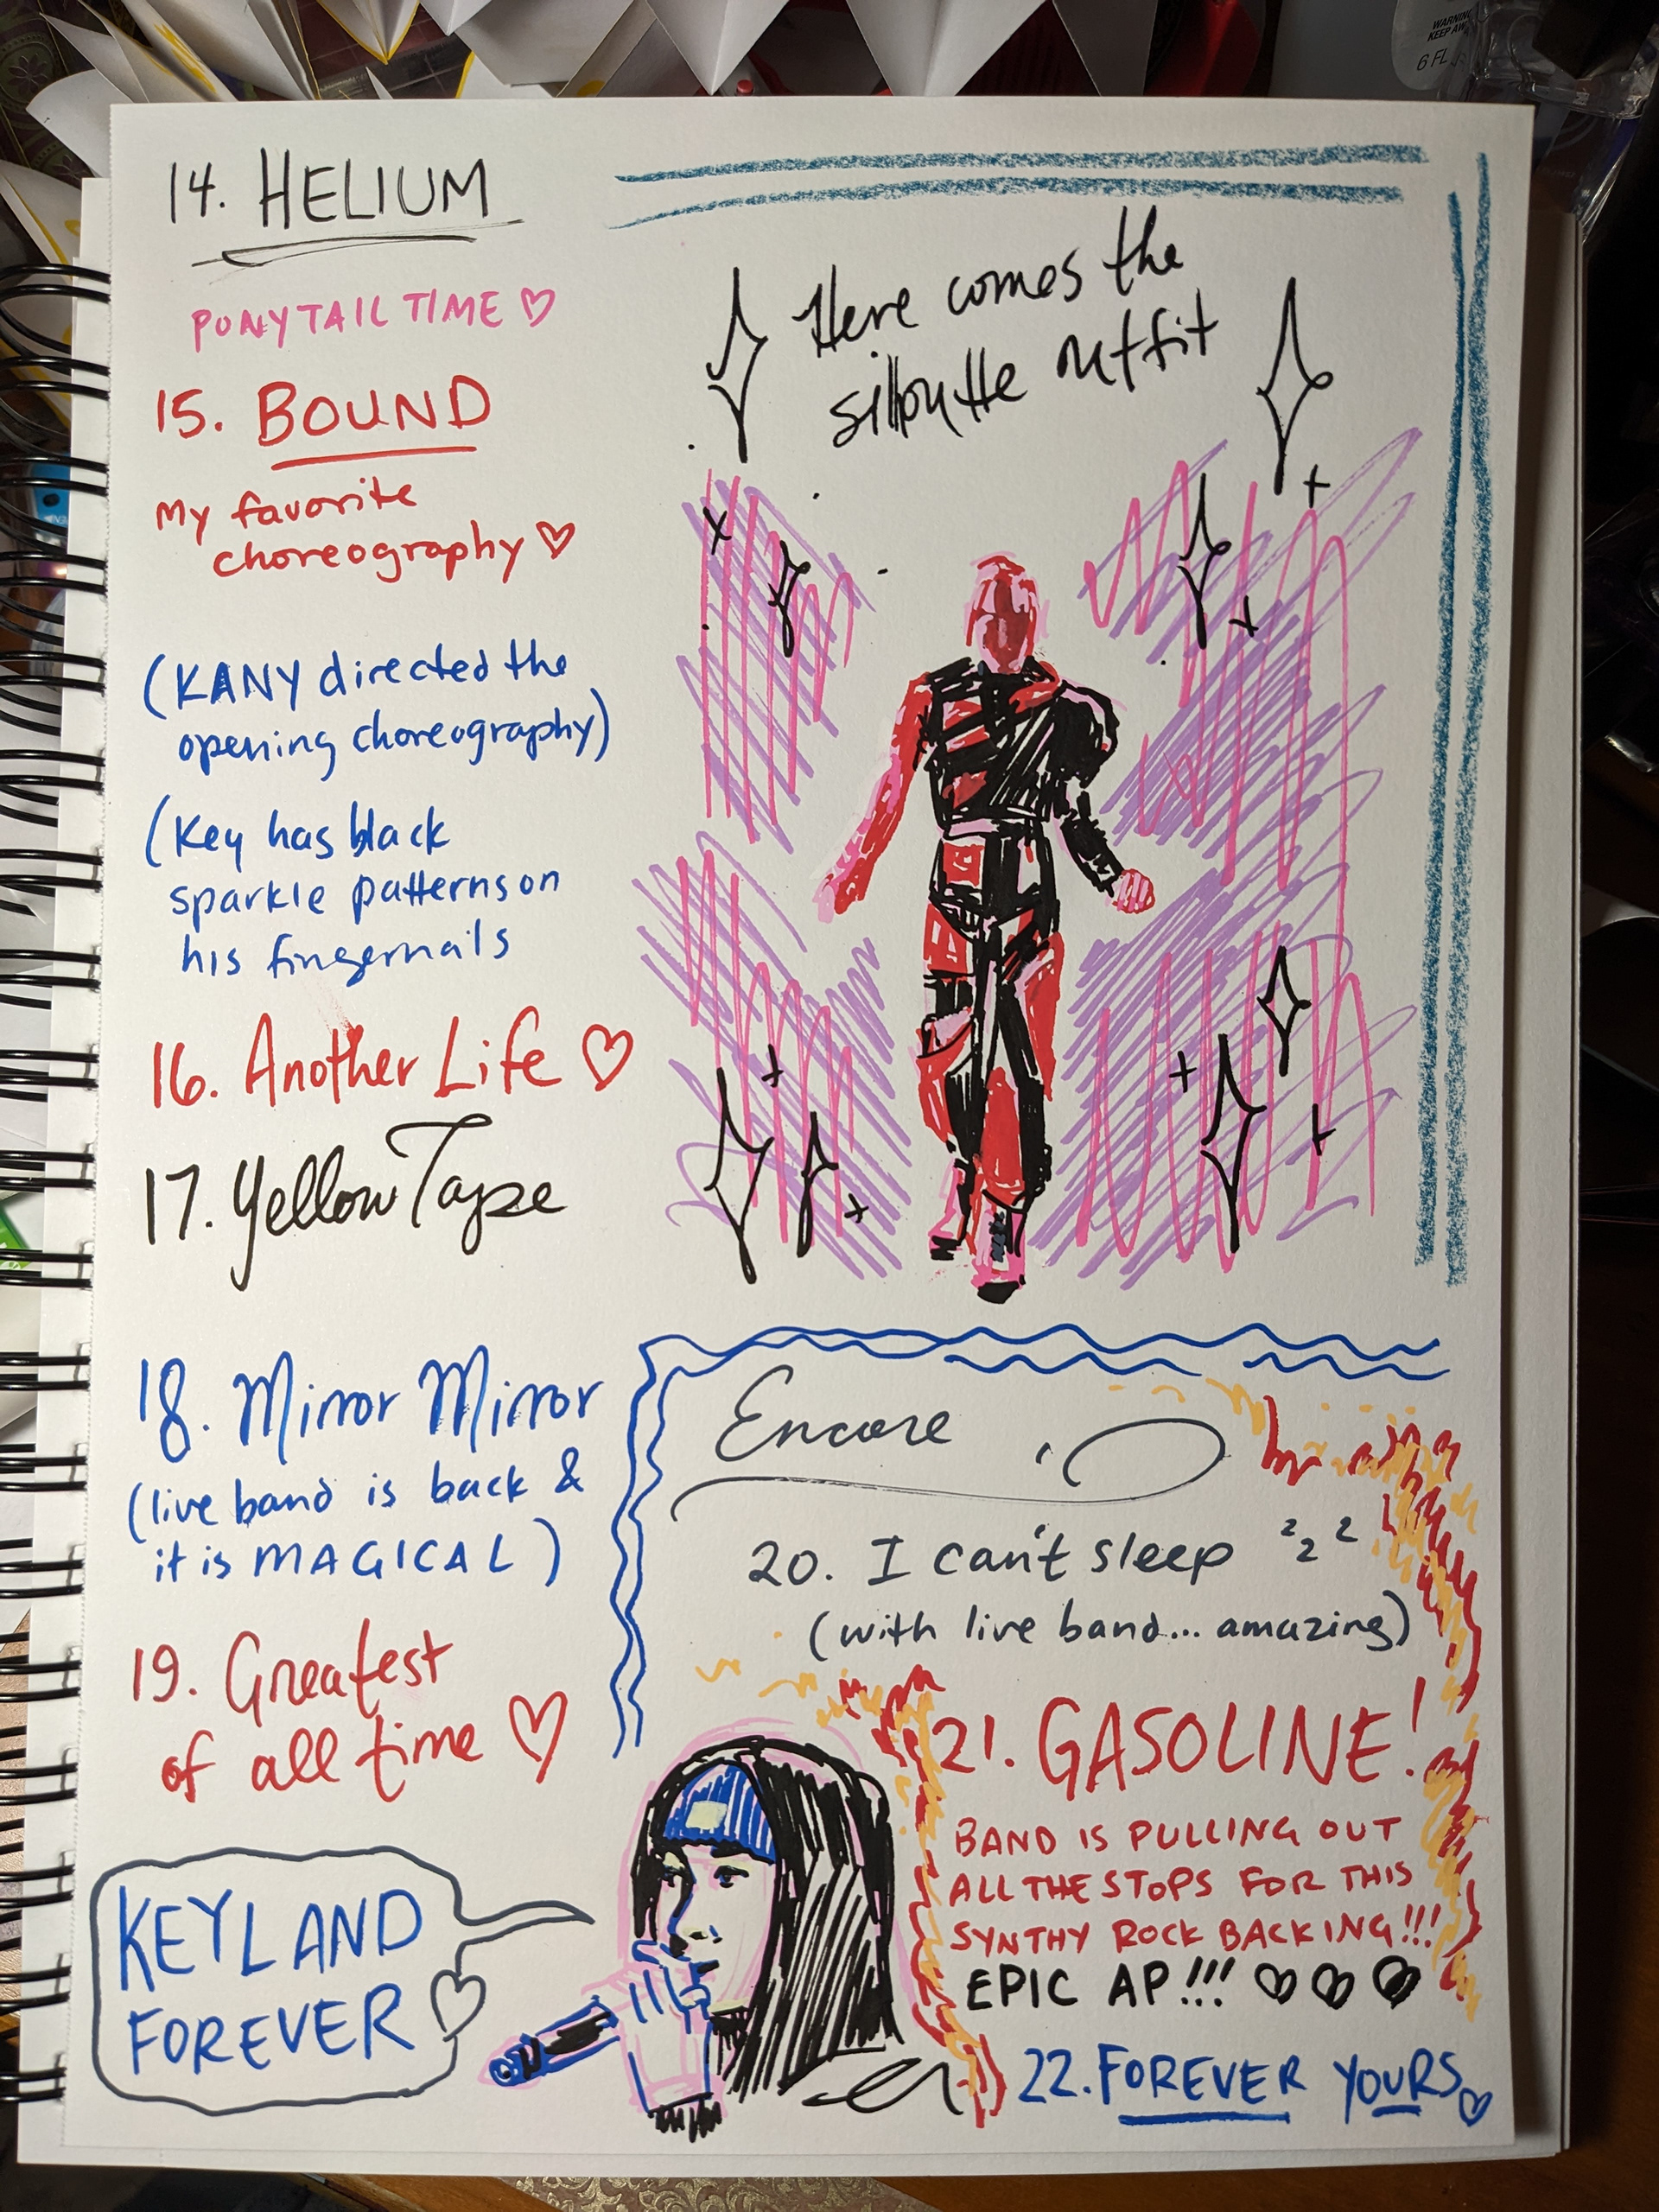 14. HELIUM
PONYTAIL TIME ♡
15. BOUND
My favorite
choreography ♡
(KANY directed the
opening choreography)
(Key has black
sparkle patterns on
his fingernails
16. Another Life ♡
17. Yellow Tape
18. Mirror Mirror
(live band is back &
it is MAGICAL)
19. Greatest
of all time ♡
KEYLAND
FOREVER ♡
Here comes the
silloutte outfit
Encore
20. I can't sleep z z z
(with live band... amazing)
21. GASOLINE!
BAND IS PULLING OUT
ALL THE STOPS FOR THIS
SYNTHY ROCK BACKING!!!
EPIC AP!!! ♡ ♡ ♡
22. FOREVER YOURS ♡
WARNING
KEEP AW
6 FL